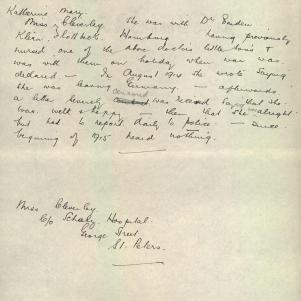 Katherine Mary.
Miss Cleverley she was with Dr
Klein Flottbek Hamburg having previously
nursed one of the above doctor's little boys &
was with them on holiday when war was
declared — In August 1914 she wrote saying
she was leaving Germany — afterwards
a letter censored was received saying that she
was well & happy — then that she alright
but had to report daily to police — since
beginning of 1915 heard nothing.
Miss Cleverley
c/o Hospital
George Street
St. Peters.